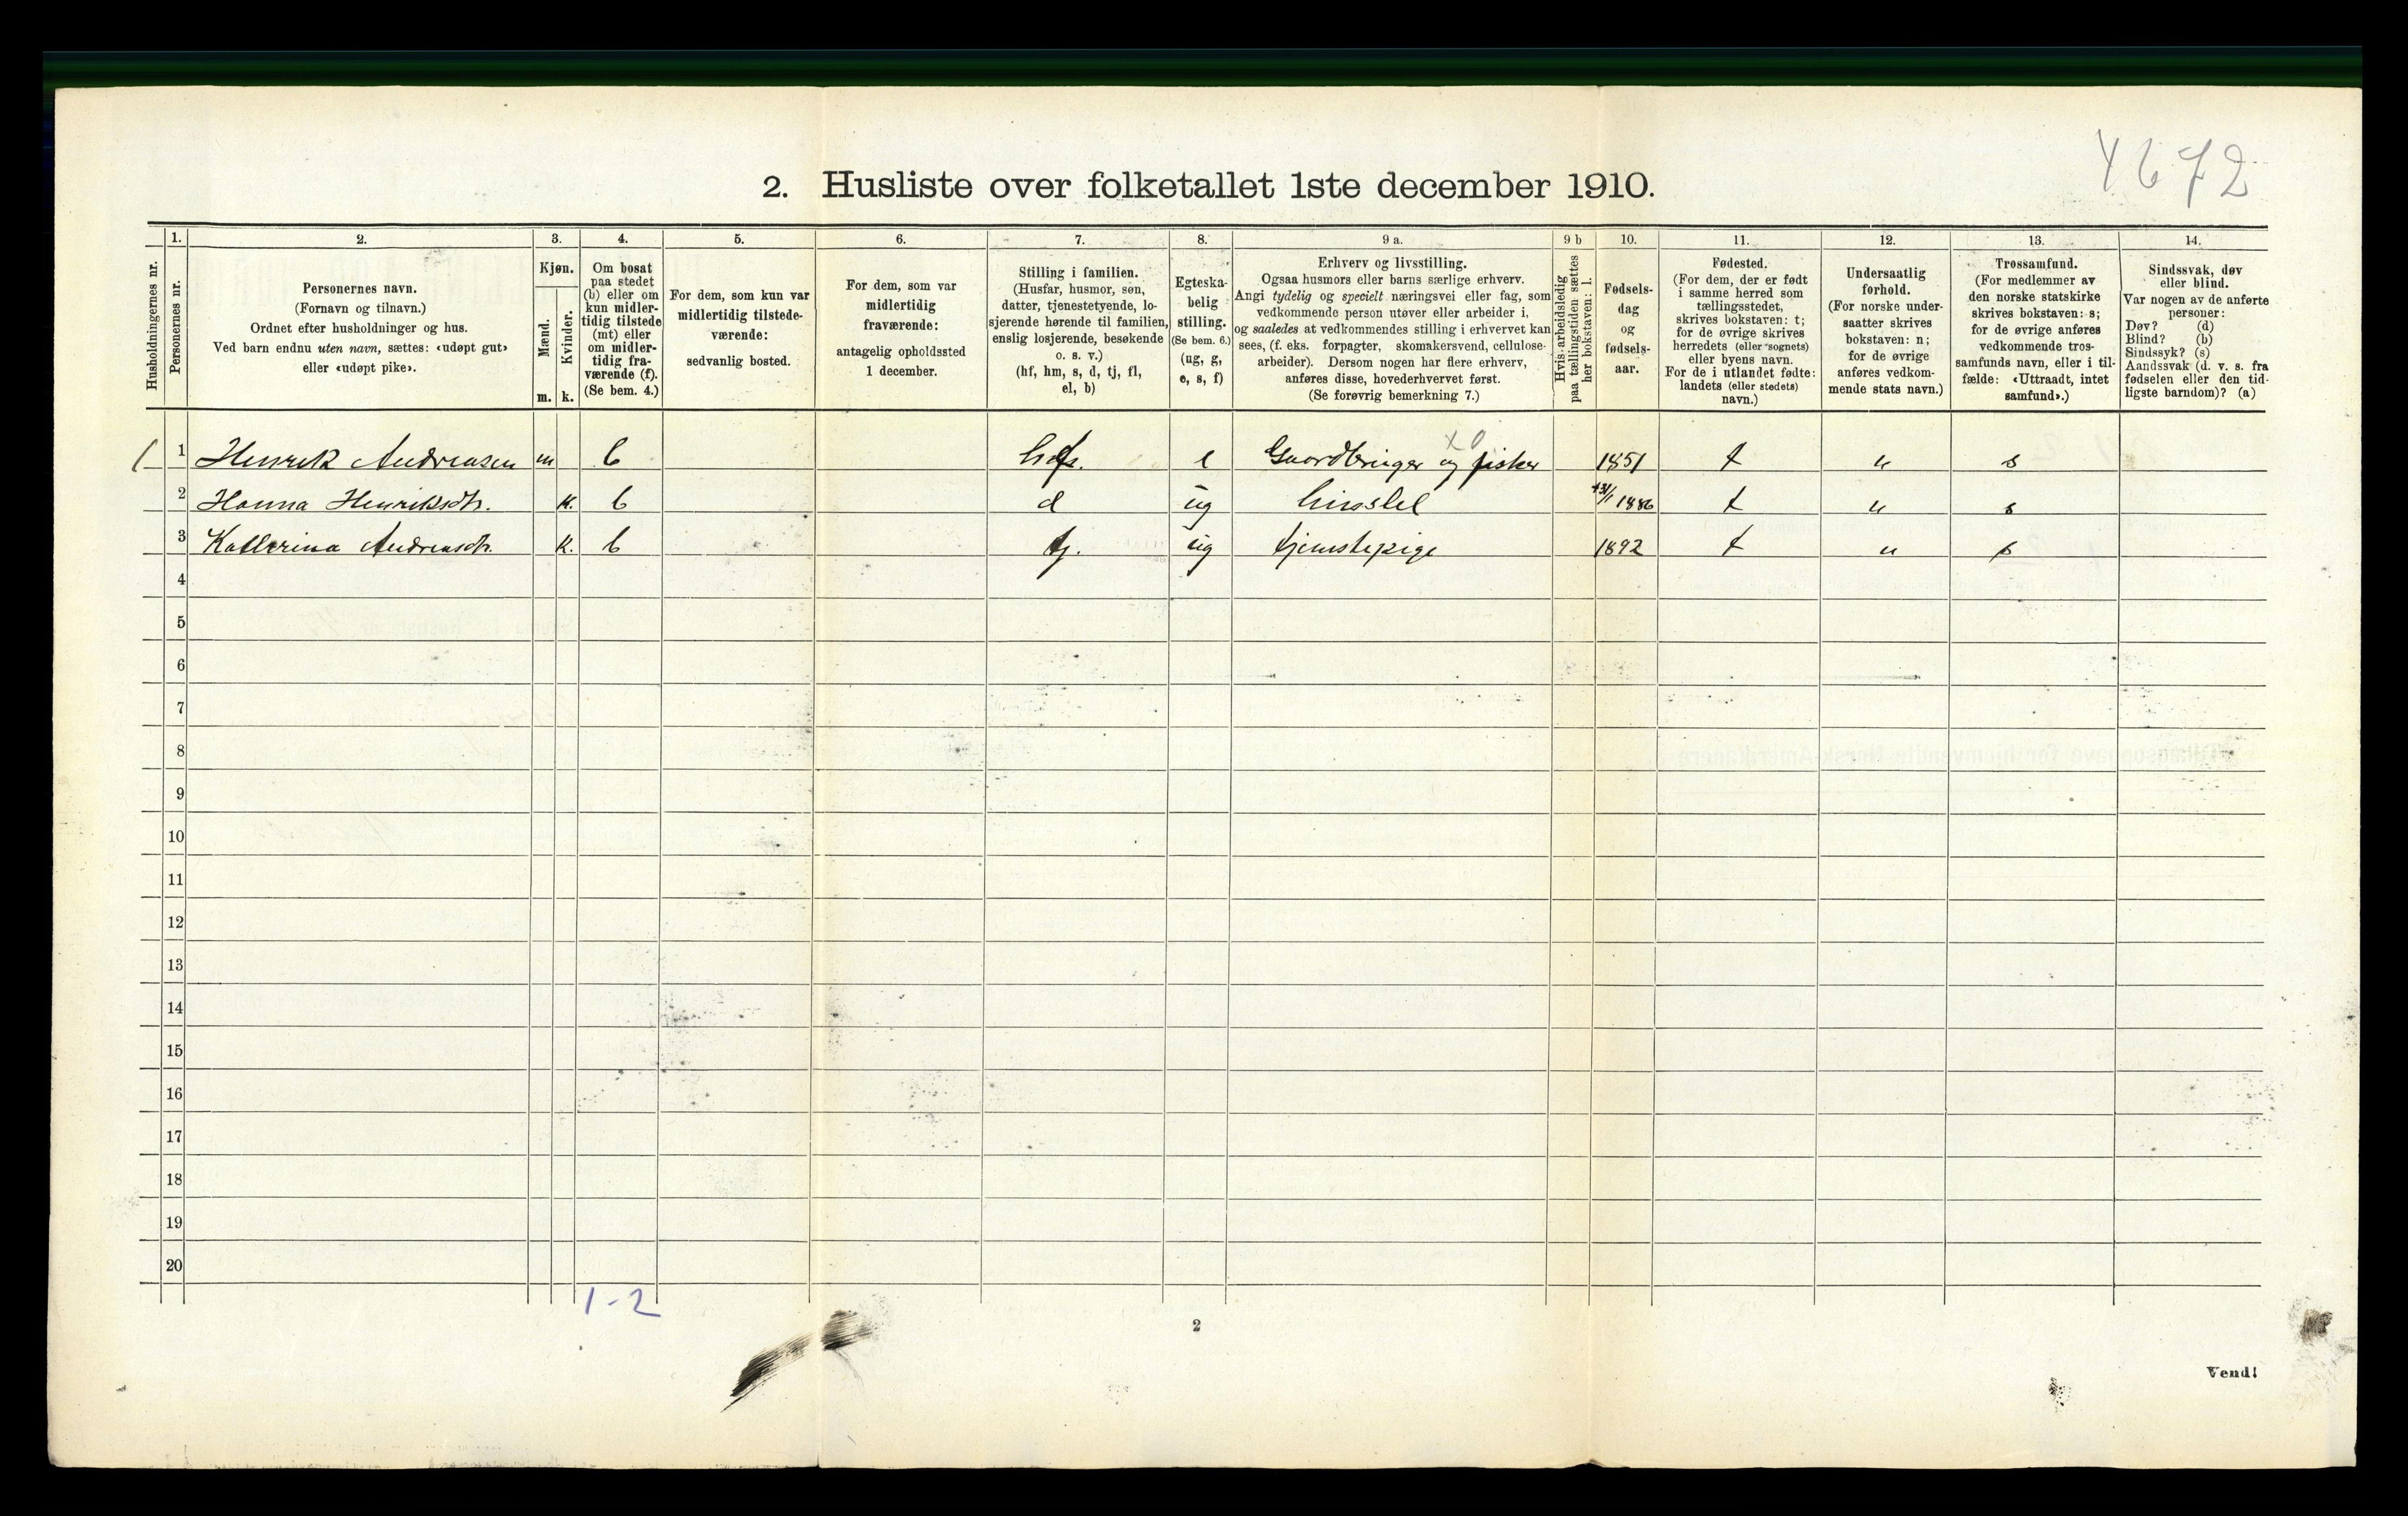 4672
2. Husliste over folketallet 1ste december 1910.
1. 2. 3. 4. 5. 6. 7. 8. 9 a. 9 b 10. 11. 12. 13. 14.
Husholdningernes nr.
Personernes nr.
Personernes navn.
(Fornavn og tilnavn.)
Ordnet efter husholdninger og hus.
Ved barn endnu uten navn, sættes: «udøpt gut»
eller «udøpt pike».
Kjøn.
Mænd.
Kvinder.
m. k.
Om bosat
paa stedet
(b) eller om
kun midler-
tidig tilstede
(mt) eller
om midler-
tidig fra-
værende (f).
(Se bem. 4.)
For dem, som kun var
midlertidig tilstede-
værende:
sedvanlig bosted.
For dem, som var
midlertidig
fraværende:
antagelig opholdssted
1 december.
Stilling i familien.
(Husfar, husmor, søn,
datter, tjenestetyende, lo-
sjerende hørende til familien,
enslig losjerende, besøkende
o. s. v.)
(hf, hm, s, d, tj, fl,
el, b)
Egteska-
belig
stilling.
(Se bem. 6.)
(ug, g,
e, s, f)
Erhverv og livsstilling.
Ogsaa husmors eller barns særlige erhverv.
Angi tydelig og specielt næringsvei eller fag, som
vedkommende person utøver eller arbeider i,
og saaledes at vedkommendes stilling i erhvervet kan
sees, (f. eks. forpagter, skomakersvend, cellulose-
arbeider). Dersom nogen har flere erhverv,
anføres disse, hovederhvervet først.
(Se forøvrig bemerkning 7.)
Hvis arbeidsledig
paa tællingstiden sættes
her bokstaven: l.
Fødsels-
dag
og
fødsels-
aar.
Fødested.
(For dem, der er født
i samme herred som
tællingsstedet,
skrives bokstaven: t;
for de øvrige skrives
herredets (eller sognets)
eller byens navn.
For de i utlandet fødte:
landets (eller stedets)
navn.)
Undersaatlig
forhold.
(For norske under-
saatter skrives
bokstaven: n;
for de øvrige
anføres vedkom-
mende stats navn.)
Trossamfund.
(For medlemmer av
den norske statskirke
skrives bokstaven: s;
for de øvrige anføres
vedkommende tros-
samfunds navn, eller i til-
fælde: «Uttraadt, intet
samfund».)
Sindssvak, døv
eller blind.
Var nogen av de anførte
personer:
Døv? (d)
Blind? (b)
Sindssyk? (s)
Aandssvak (d. v. s. fra
fødselen eller den tid-
ligste barndom)? (a)
1 1 Henrik Andreasen m b hf. e Gaardbruger og fisker 1851 t n s
2 Hanna Henriksdtr. k. b d ug husstel 1886 t n s
3 Kathrina Andreasdtr. k. b tj. ug tjenstepige 1892 t n s
4
5
6
7
8
9
10
11
12
13
14
15
16
17
18
19
20
1-2
2
Vend!